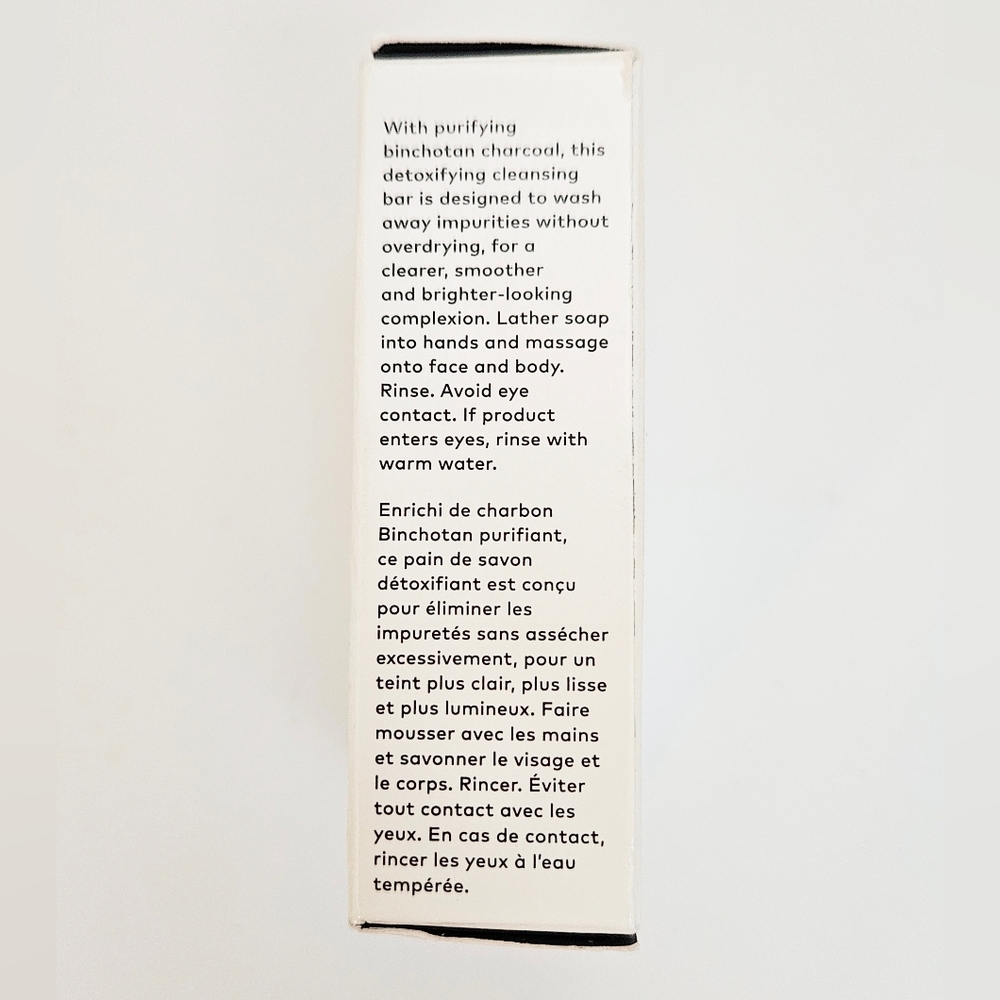 With purifying
binchotan charcoal, this
detoxifying cleansing
bar is designed to wash
away impurities without
overdrying, for a
clearer, smoother
and brighter-looking
complexion. Lather soap
into hands and massage
onto face and body.
Rinse. Avoid eye
contact. If product
enters eyes, rinse with
warm water.
Enrichi de charbon
Binchotan purifiant,
ce pain de savon
détoxifiant est conçu
pour éliminer les
impuretés sans assécher
excessivement, pour un
teint plus clair, plus lisse
et plus lumineux. Faire
mousser avec les mains
et savonner le visage et
le corps. Rincer. Éviter
tout contact avec les
yeux. En cas de contact,
rincer les yeux à l'eau
tempérée.